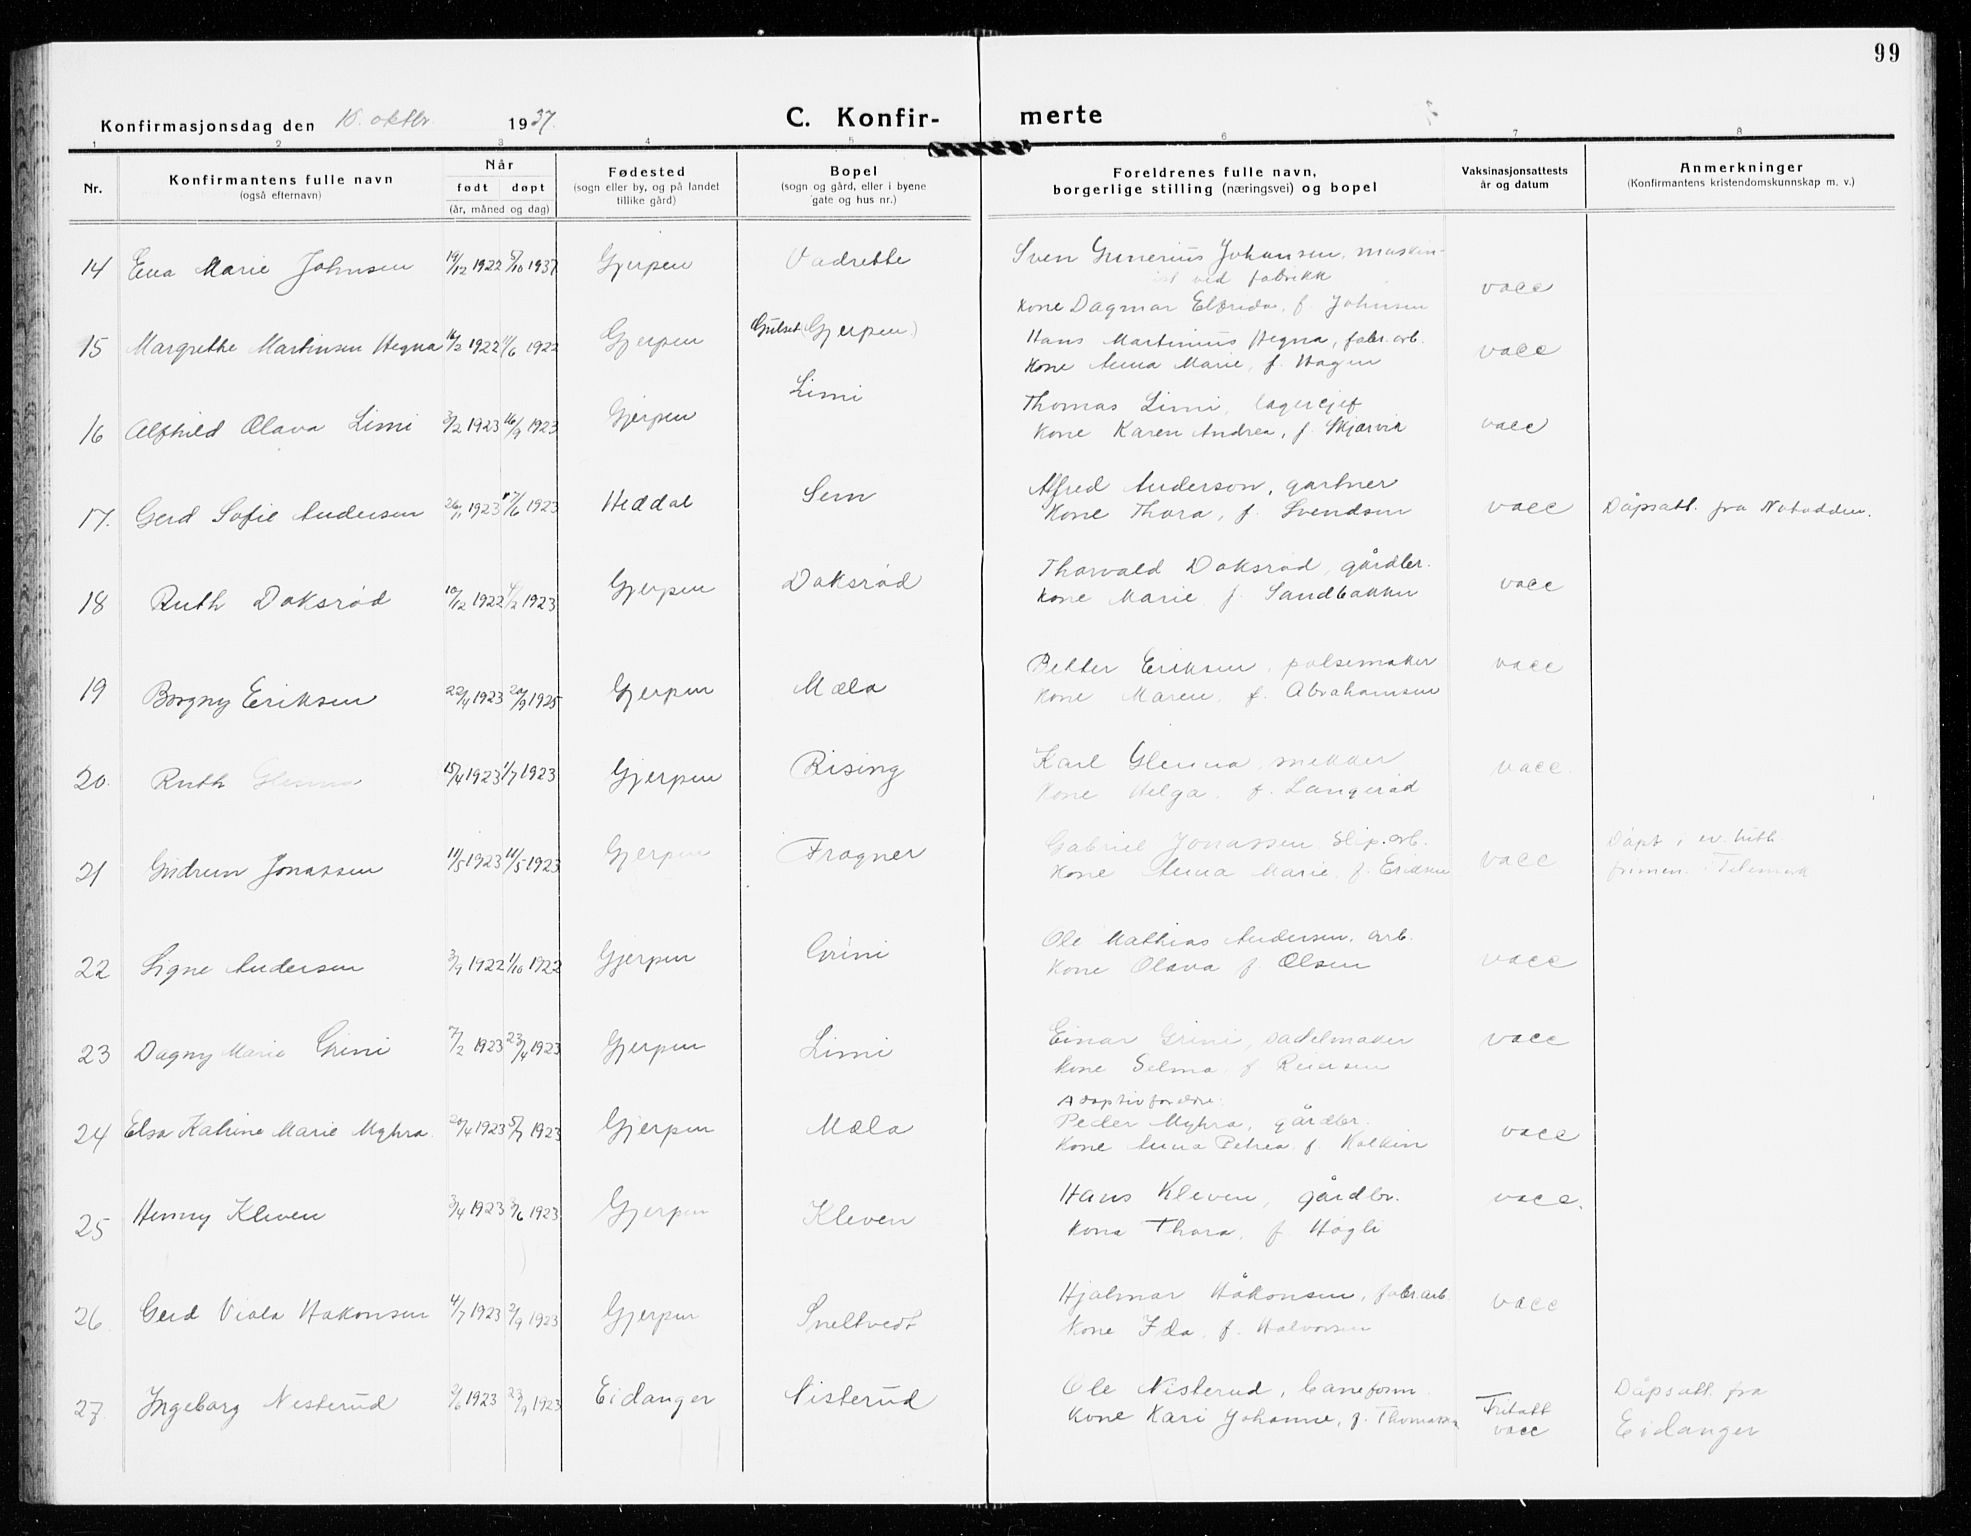 99
Konfirmasjonsdag den 10. oktbr. 1937.
C. Konfir- merte
1 2 3 4 5 6 7 8
Nr.
Konfirmantens fulle navn
(også efternavn)
Når
født døpt
(år, måned og dag)
Fødested
(sogn eller by, og på landet
tillike gård)
Bopel
(sogn og gård, eller i byene
gate og hus nr.)
Foreldrenes fulle navn,
borgerlige stilling (næringsvei) og bopel
Vaksinasjonsattests
år og datum
Anmerkninger
(Konfirmantens kristendomskunnskap m. v.)
14 Eva Marie Johnsen 19/12 1922 5/10 1937 Gjerpen Vadrette Sven Gunerius Johansen, maskin-
ist ved fabrikk vacc
Kone Dagmar Elfrida, f. Johnsen
15 Margrethe Martinsen Hegna 16/2 1922 11/6 1922 Gjerpen Gulset (Gjerpen) Hans Martinius Hegna, fabr. arb. vacc
Kone Anna Marie, f. Hagen
16 Alfhild Olava Limi 3/2 1923 16/9 1923 Gjerpen Limi Thomas Limi, lagersjef vacc
Kone Karen Andrea, f. Skjervik
17. Gerd Sofie Andersen 26/1 1923 17/6 1923 Heddal Sem Alfred Anderson, gartner vacc Dåpsatt. fra Notodden.
Kone Thora, f. Svendsen
18 Ruth Doksrød 10/12 1922 4/2 1923 Gjerpen Doksrød Thorvald Doksrød, gårdbr. vacc
Kone Marie f. Sandbakken
19 Borgny Eriksen 22/4 1923 20/9 1925 Gjerpen Mæla Petter Eriksen, pølsemaker vacc
Kone Maren, f. Abrahamsen
20. Ruth Glenna 15/4 1923 1/7 1923 Gjerpen Rising Karl Glenna, snekker vacc.
Kone Helga, f. Langerød
21 Gudrun Jonassen 11/5 1923 11/5 1923 Gjerpen Frogner Gabriel Jonassen, slip. arb. vacc Døpt i ev. luth.
Kone Anna Marie, f. Eriksen frimen. i Telemark
22 Signe Andersen 3/9 1922 1/10 1922 Gjerpen Grini Ole Mathias Andersen, arb. vacc
Kone Olava f. Olsen
23 Dagny Marie Grini 7/2 1923 23/4 1923 Gjerpen Limi Einar Grini, sadelmaker vacc
Kone Selma, f. Reiersen
Adoptivforeldre:
24 Elsa Katrine Marie Myhra 20/4 1923 5/7 1923 Gjerpen Mæla Peder Myhra, gårdbr. vacc
Kone Anna Petrea, f. Kolkin
25 Henny Kleven 3/4 1923 3/6 1923 Gjerpen Kleven Hans Kleven, gårdbr. vacc.
Kone Thora, f. Høgli
26. Gerd Viola Hakonsen 4/7 1923 2/9 1923 Gjerpen Sneltvedt Hjalmar Håkonsen, fabr. arb. vacc
Kone Ida, f. Halvorsen
27. Ingeborg Nisterud 9/6 1923 23/9 1923 Eidanger Nisterud Ole Nisterud, baneform. Fritatt Dåpsatt. fra
Kone Kari Johanne, f. Thomassen vacc Eidanger